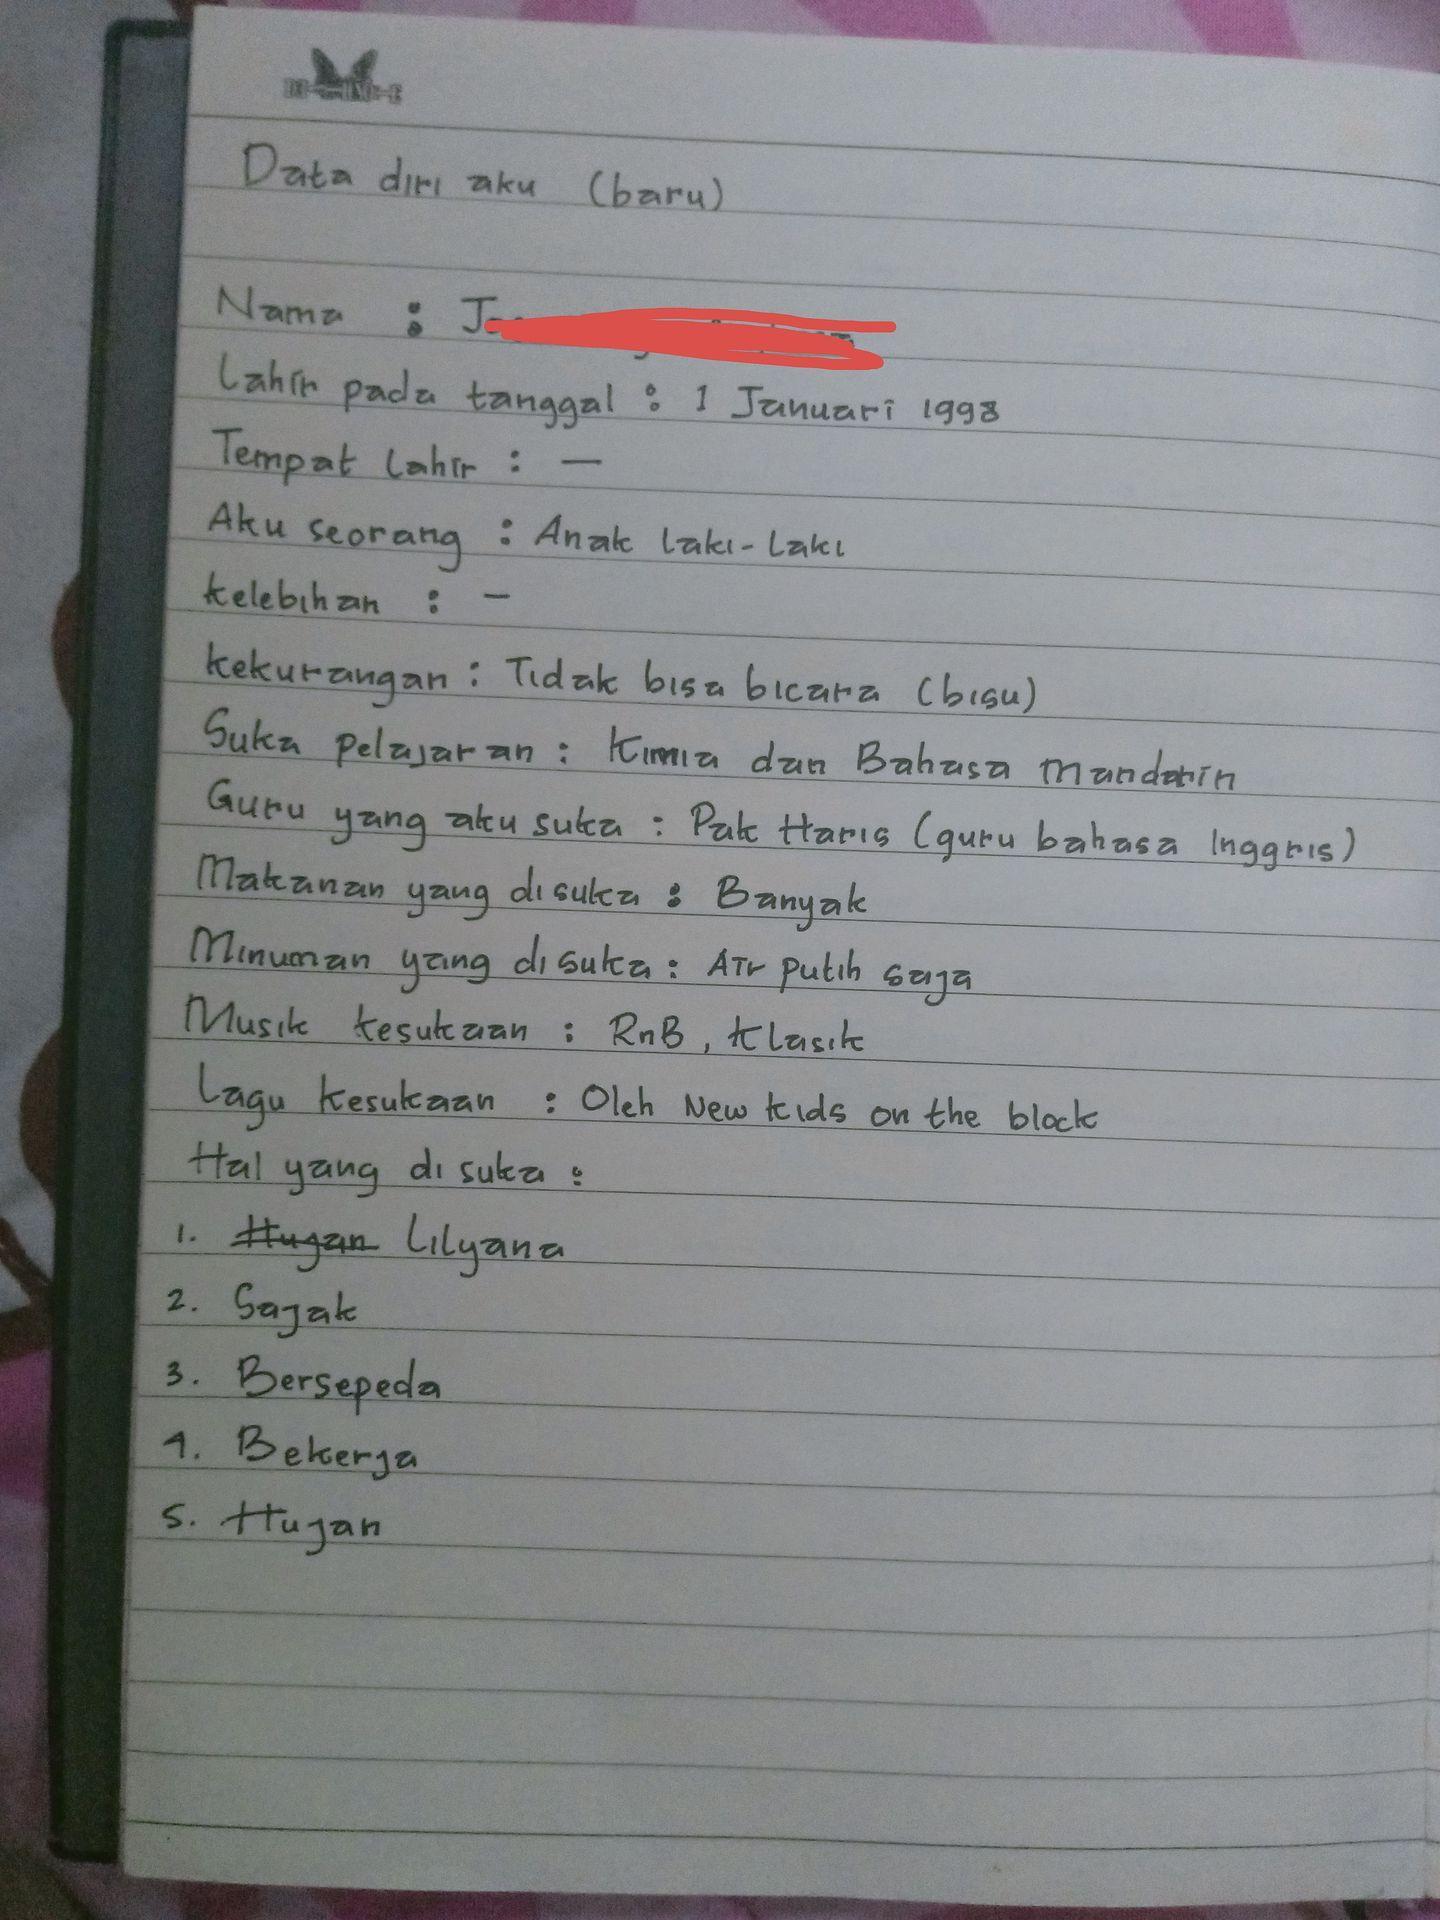 Data diri aku (baru)
Nama :
Lahir pada tanggal : 1 Januari 1998
Tempat Lahir : —
Aku seorang : Anak laki-laki
Kelebihan : -
Kekurangan : Tidak bisa bicara (bisu)
Suka pelajaran : Kimia dan Bahasa Mandarin
Guru yang aku suka : Pak Haris (guru bahasa Inggris)
Makanan yang disuka : Banyak
Minuman yang disuka : Air putih saja
Musik kesukaan : RnB, Klasik
Lagu kesukaan : Oleh New kids on the block
Hal yang disuka :
1. Hujan Lilyana
2. Sajak
3. Bersepeda
4. Bekerja
5. Hujan